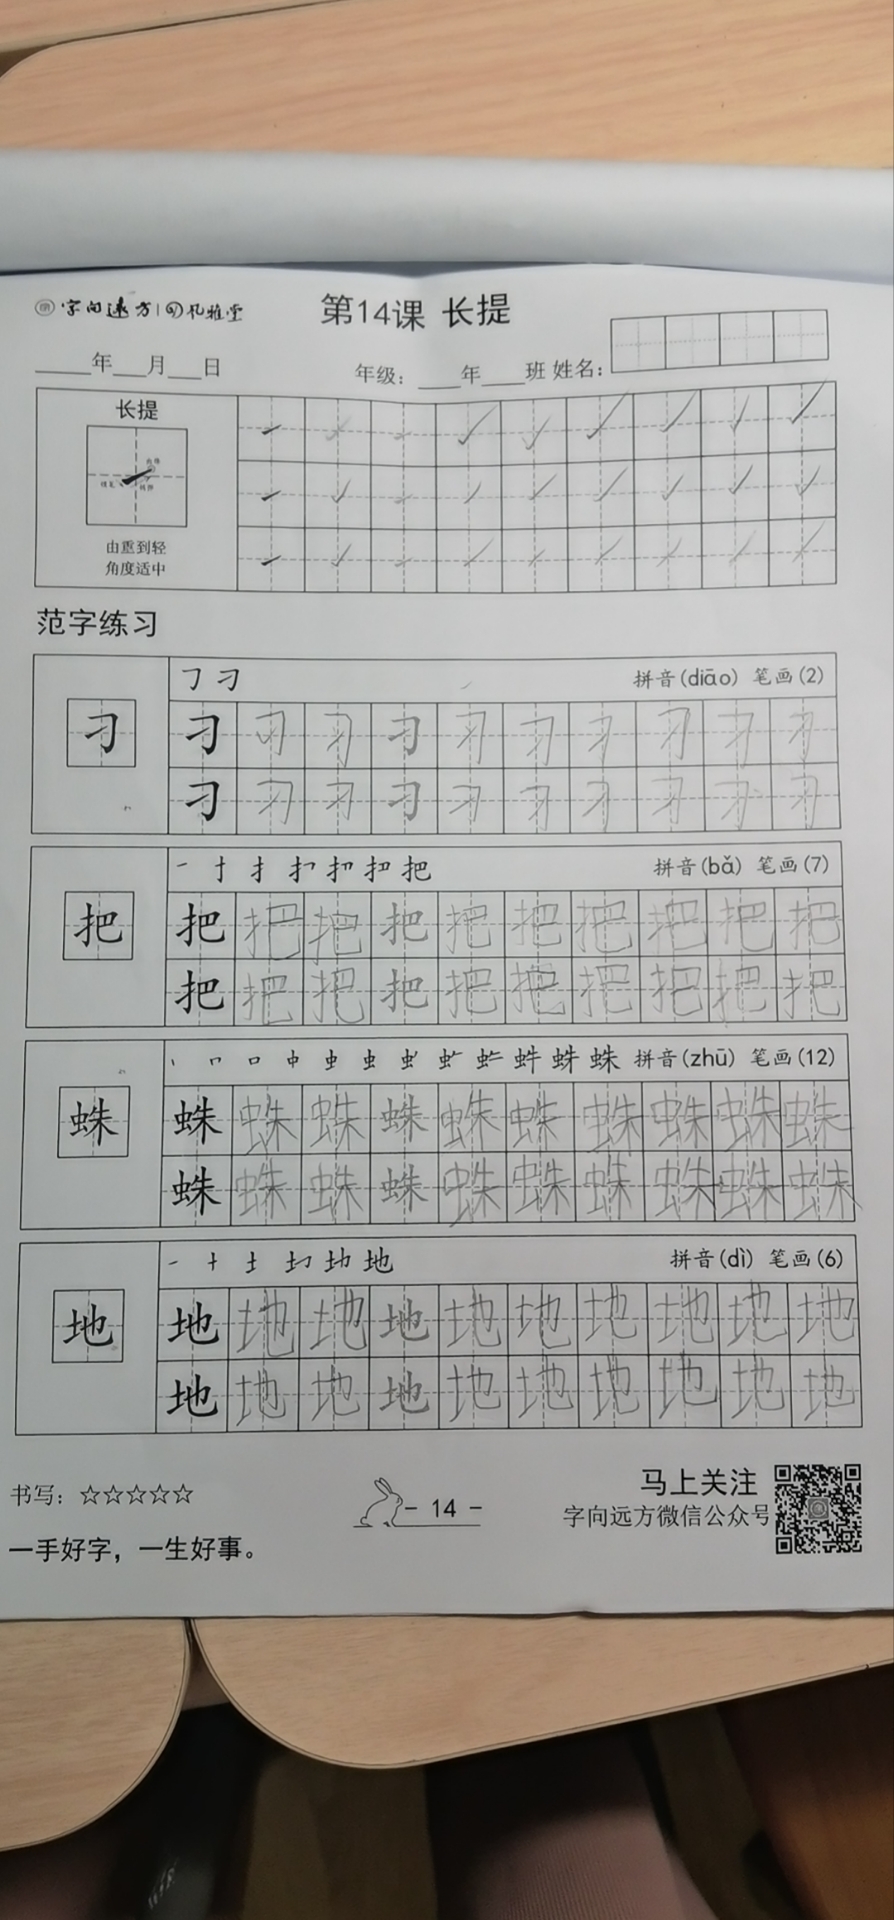 字向远方 孔雅堂
第14课 长提
____年___月___日
年级：___年___班 姓名：
长提
由重到轻
角度适中
范字练习
㇆ 刁 拼音(diāo) 笔画(2)
刁 刁 刁 刁 刁 刁 刁 刁 刁 刁 刁
刁 刁 刁 刁 刁 刁 刁 刁 刁 刁
一 十 扌 把 拼音(bǎ) 笔画(7)
把 把 把 把 把 把 把 把 把 把 把
把 把 把 把 把 把 把 把 把 把
丶 口 中 虫 蛛 拼音(zhū) 笔画(12)
蛛 蛛 蛛 蛛 蛛 蛛 蛛 蛛 蛛 蛛 蛛
蛛 蛛 蛛 蛛 蛛 蛛 蛛 蛛 蛛 蛛
一 十 土 地 拼音(dì) 笔画(6)
地 地 地 地 地 地 地 地 地 地 地
地 地 地 地 地 地 地 地 地 地
书写：☆☆☆☆☆
一手好字，一生好事。
- 14 -
马上关注
字向远方微信公众号